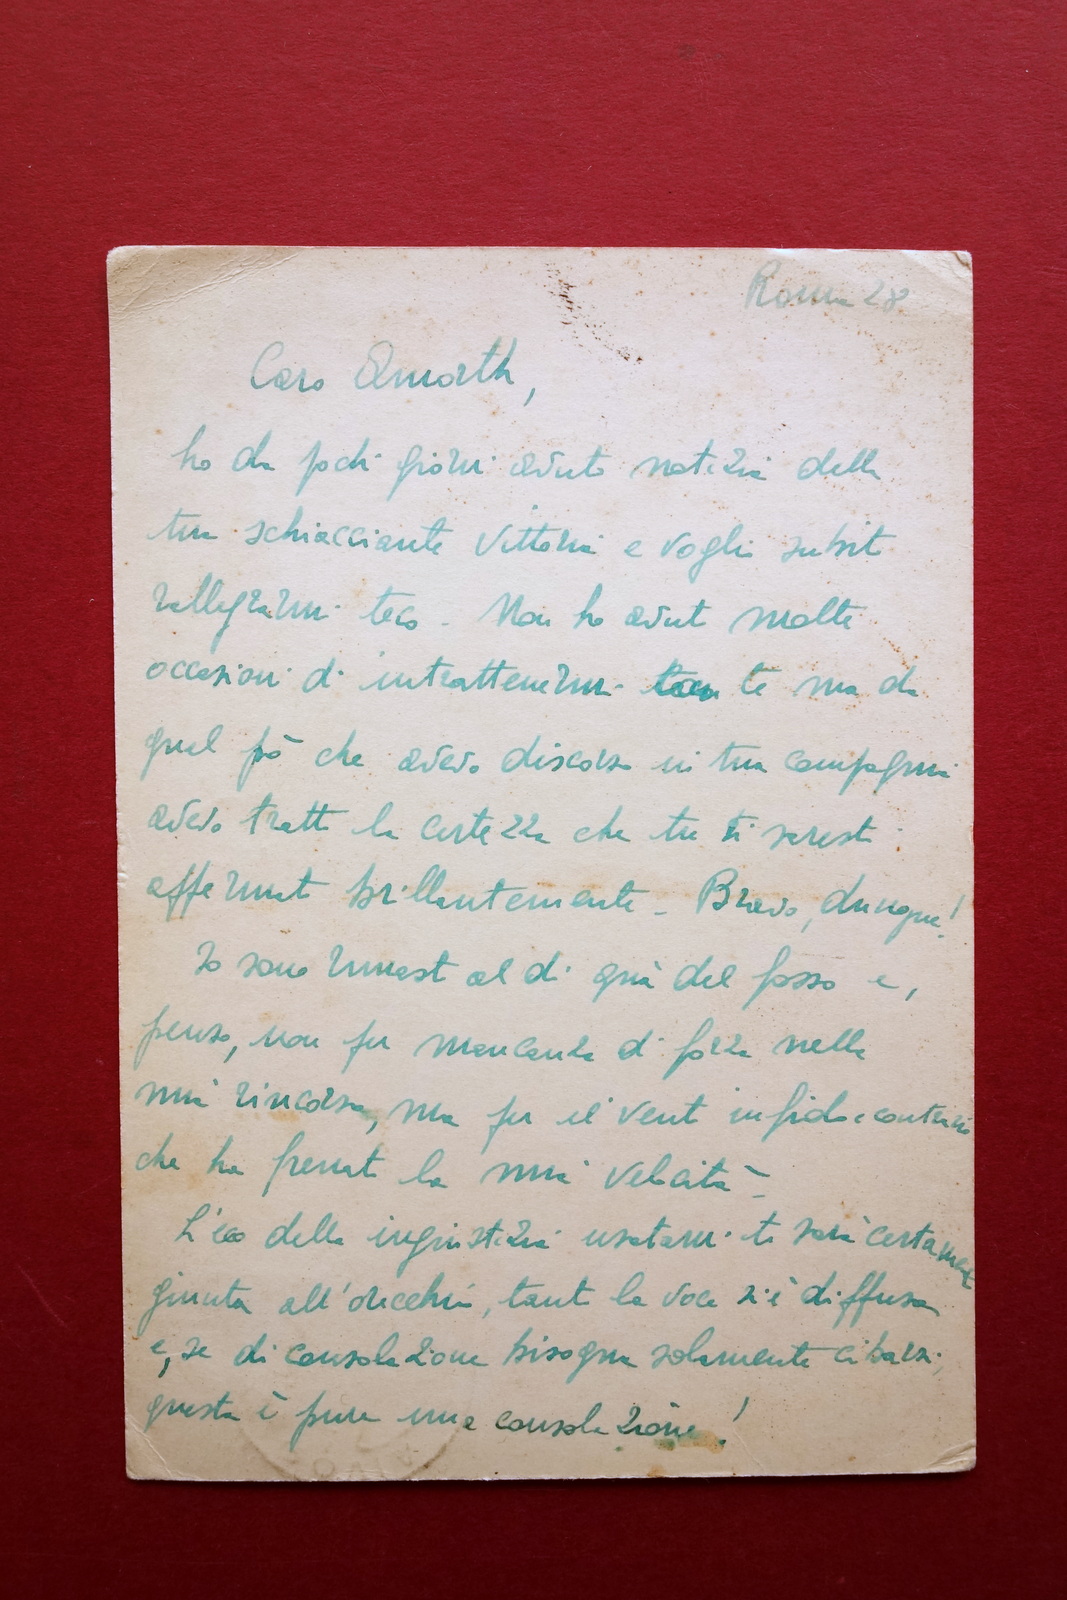 Roma 28
Caro Amorth,
ho da pochi giorni avuto notizia della
tua schiacciante vittoria e voglio subito
rallegrarmi teco - Non ho avuto molte
occasioni di intrattenermi con te ma da
quel pò che avevo discorso in tua compagnia
avevo tratto la certezza che tu ti saresti
affermato brillantemente - Bravo, dunque!
Io sono rimasto al di quà del fosso e,
penso, non fu mancanza di forza nella
mia rincorsa, ma fu il vento infido e contrario
che ha frenato la mia velocità -
L'eco della ingiustizia usatami ti sarà certamente
giunta all'orecchio, tanto la voce si è diffusa
e, se di consolazione bisogna solamente cibarsi,
questa è pure una consolazione!